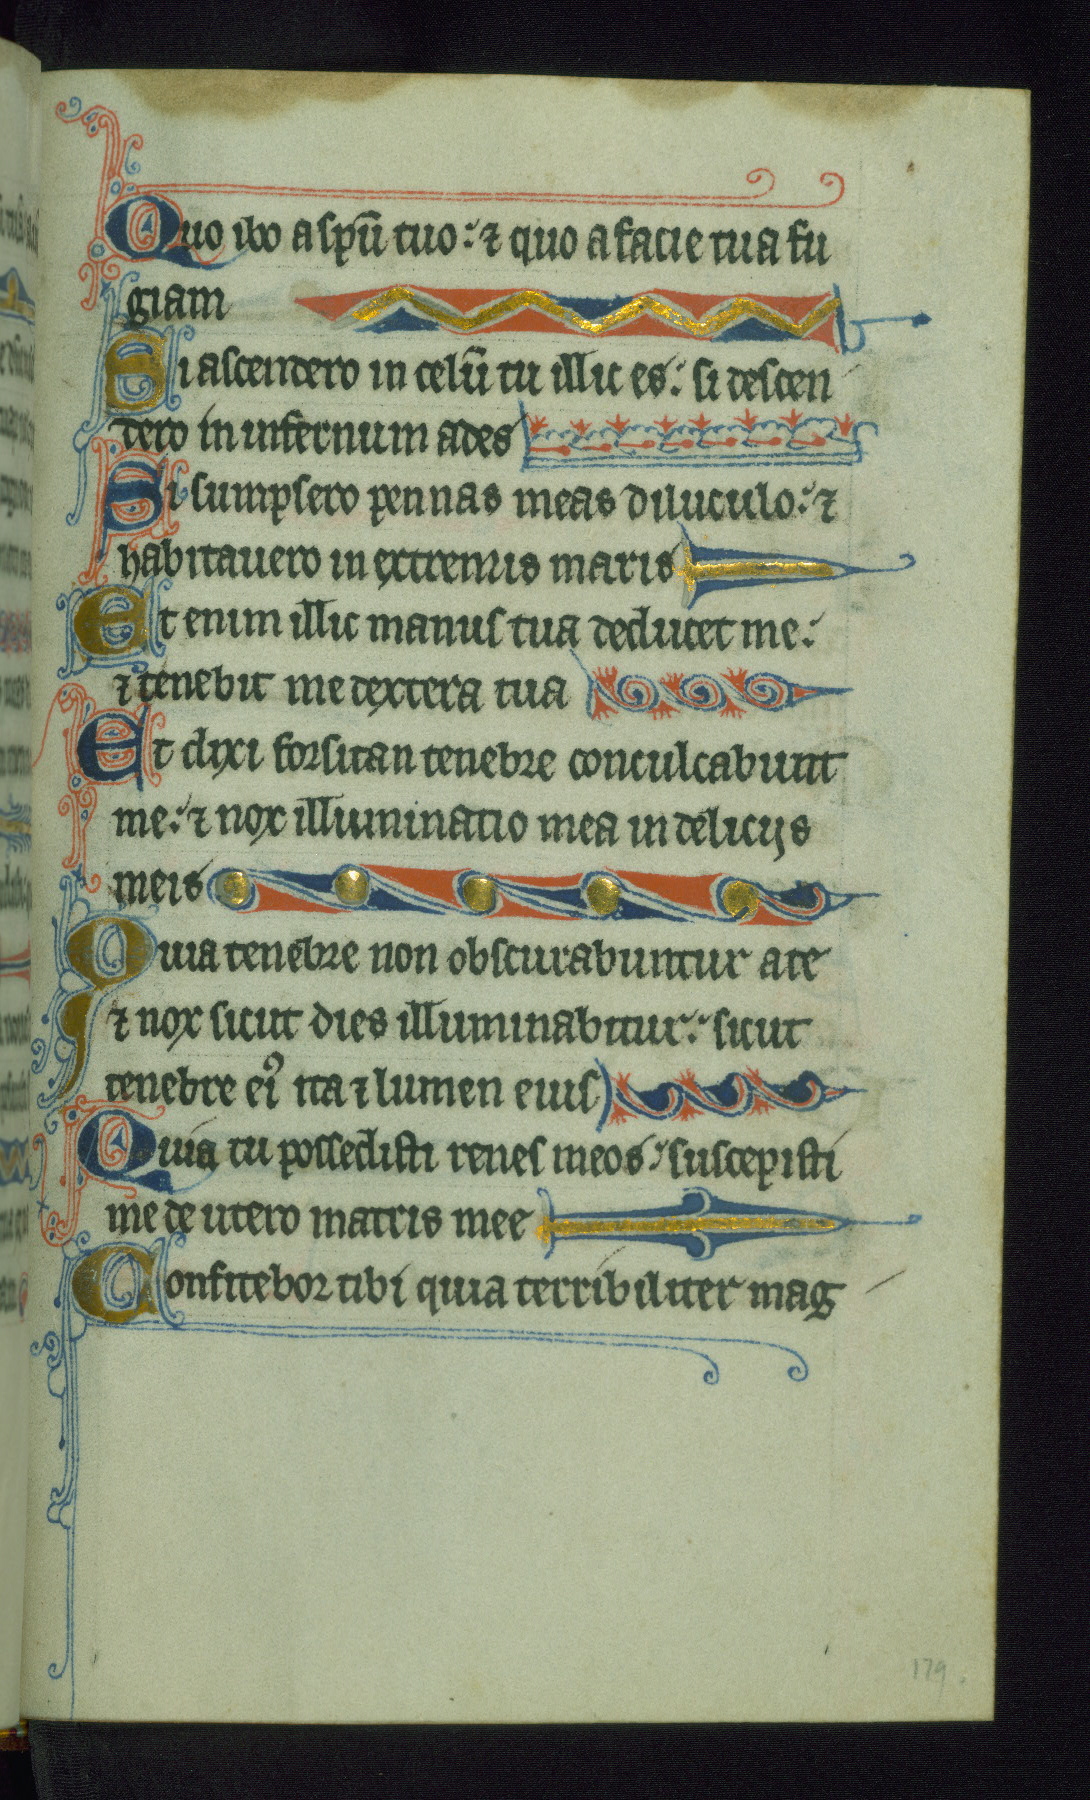 Quo ibo a spu̅ tuo: ⁊ quo a facie tua fu
giam
Si ascendero in celu̅ tu illic es: si descen
dero in infernum ades
Si sumpsero pennas meas diluculo: ⁊
habitauero in extremis maris
Et enim illic manus tua deducet me:
⁊ tenebit me dextera tua
Et dixi forsitan tenebre conculcabunt
me: ⁊ nox illuminatio mea in delicijs
meis
Quia tenebre non obscurabuntur a te
⁊ nox sicut dies illuminabitur: sicut
tenebre ei᾽ ita ⁊ lumen eius
Quia tu possedisti renes meos: suscepisti
me de utero matris mee
Confitebor tibi quia terribiliter mag
179